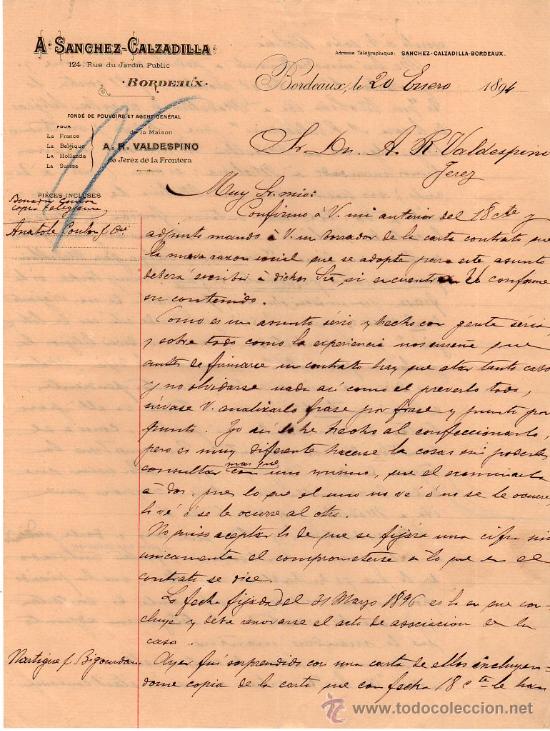 A. SANCHEZ-CALZADILLA
124, Rue du Jardin Public
BORDEAUX
Adresse Télégraphique: SANCHEZ-CALZADILLA-BORDEAUX.
Bordeaux, le 20 Enero 1894
FONDÉ DE POUVOIRS ET AGENT GÉNÉRAL
POUR
La France
La Belgique
La Hollande
La Suisse
de la Maison
A. R. VALDESPINO
de Jerez de la Frontera
Sr. Dn. A. R. Valdespino
Jerez
PIÈCES INCLUSES
Muy Sr. mio:
Confirmo á V. mi anterior del 18 cte y
Anatole
adjunto mando á V. un borrador de la carta contrato que
la nueva razon social que se adopte para este asunto
deberá escribir á dichos Sres si encuentra V. conforme
su contenido.
Como es un asunto sério y hecho con gente séria
y sobre todo como la experiencia nos enseña que
antes de firmarse un contrato hay que atar tanto cabo
y no olvidarse nada así como el preverlo todo,
sírvase V. analizarlo frase por frase y punto por
punto. Yo así lo he hecho al confeccionarlo,
pero es muy diferente hacerse la cosa sin poderla
consultar mas que con uno mismo, que el examinarla
á dos, pues lo que el uno no vé ó no se le ocurre
lo vé ó se le ocurre al otro.
No quiso aceptar lo de que se fijara una cifra sino
unicamente el comprometerse a lo que en el
contrato se dice.
La fecha fijada del 31 Marzo 1896 es la en que con-
cluye y debe renovarse el acto de asociacion de la
casa.
Nartigue f. Bigourdan
Ayer fuí sorprendido con una carta de ellos incluyen-
dome copia de la carta que con fecha 18 cte le han
todocoleccion.net